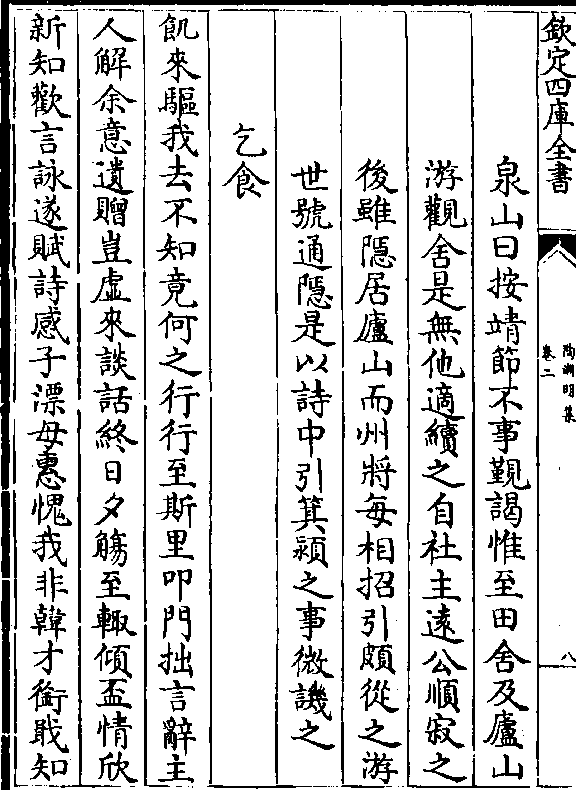 欽定四庫全書
陶淵明集
卷二
八
泉山曰按靖節不事覲謁惟至田舍及廬山
游觀舍是無他適續之自社主遠公順寂之
後雖隱居廬山而州將每相招引頗從之游
世號通隱是以詩中引箕潁之事微譏之
乞食
飢來驅我去不知竟何之行行至斯里叩門拙言辭主
人解余意遺贈豈虛來談話終日夕觴至輙傾盃情欣
新知歡言詠遂賦詩感子漂母惠愧我非韓才銜戢知